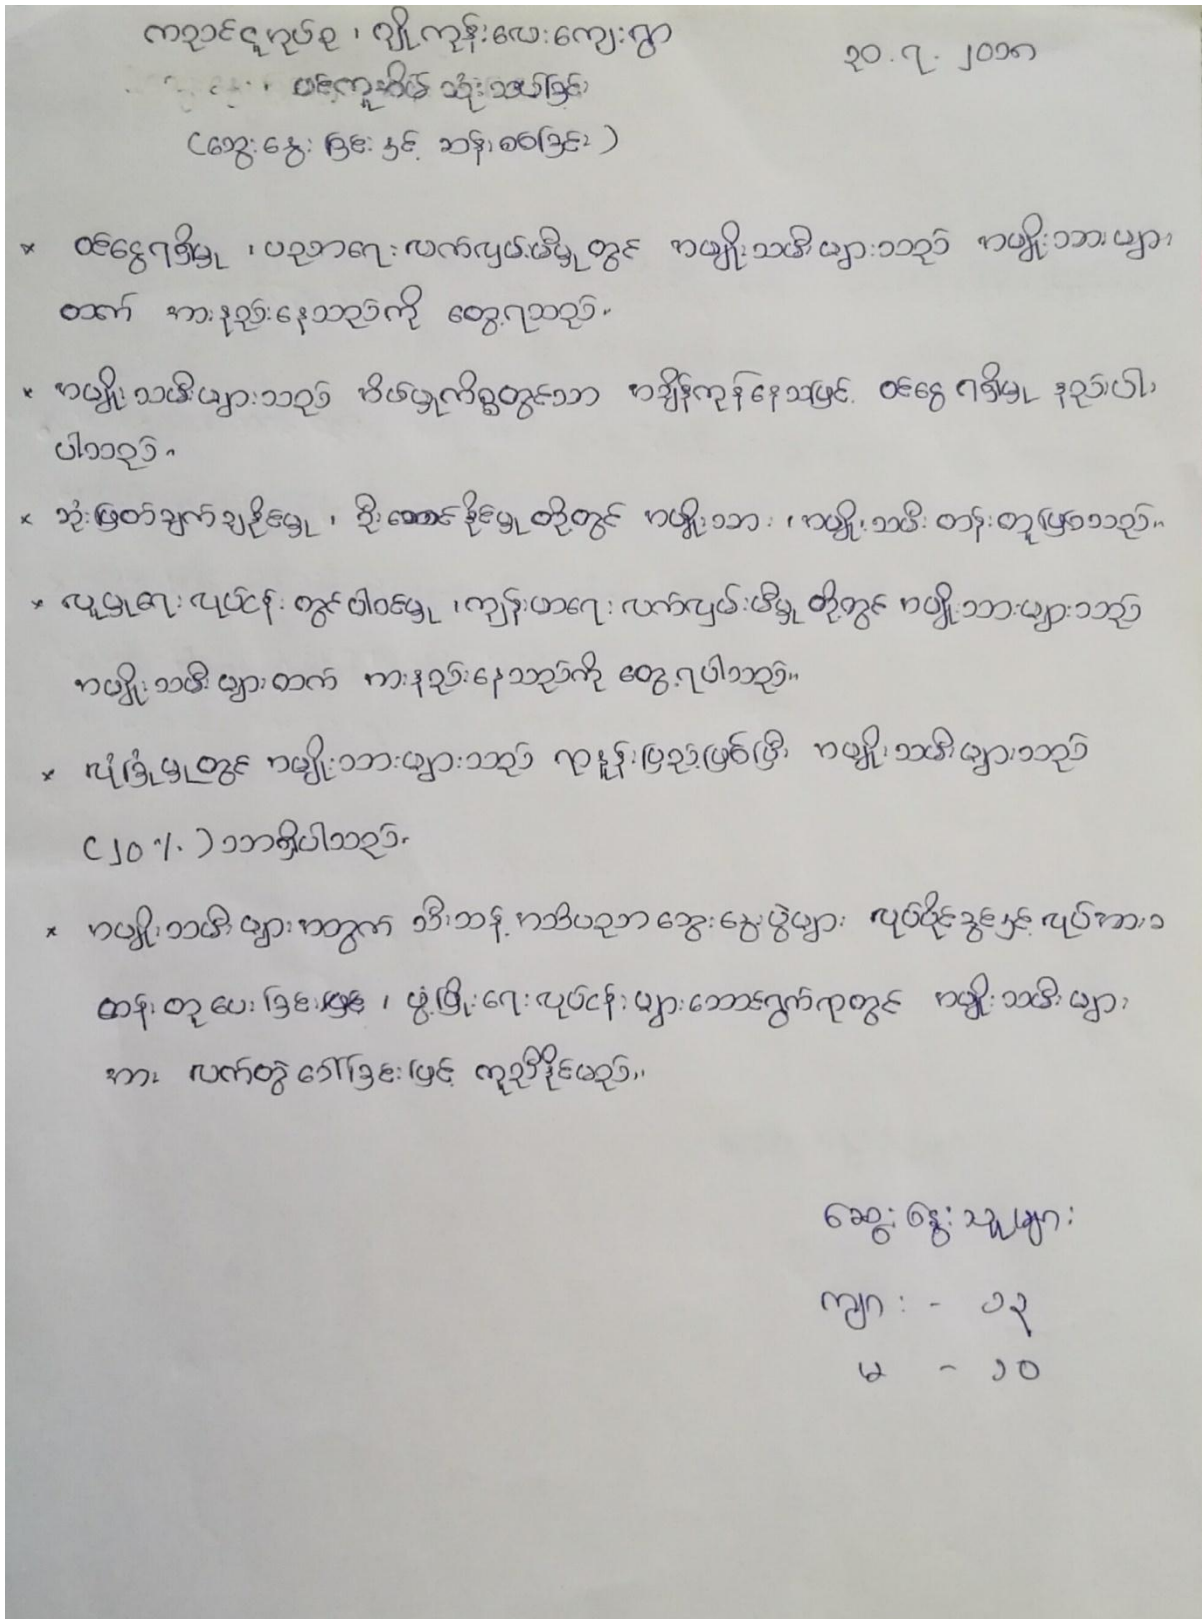 ကညင်ငူအုပ်စု၊ ဂျိုကုန်းလေးကျေးရွာ
၃၀.၇.၂၀၁၈
ပင့်ကူအိမ် သုံးသပ်ခြင်း
(ဆွေးနွေးခြင်းနှင့် ဆန်းစစ်ခြင်း)
* ဝင်ငွေရရှိမှု ၊ ပညာရေးလက်လှမ်းမီမှုတွင် အမျိုးသမီးများသည် အမျိုးသားများ
ထက် အားနည်းနေသည်ကို တွေ့ရသည်။
* အမျိုးသမီးများသည် အိမ်မှုကိစ္စတွင်သာ အချိန်ကုန်နေသဖြင့် ဝင်ငွေ ရရှိမှု နည်းပါး
ပါသည်။
* ဆုံးဖြတ်ချက်ချနိုင်မှု ၊ ဦးဆောင်နိုင်မှုတို့တွင် အမျိုးသား ၊ အမျိုးသမီး တန်းတူဖြစ်သည်။
* လူမှုရေးလုပ်ငန်းတွင်ပါဝင်မှု ၊ ကျန်းမာရေးလက်လှမ်းမီမှုတို့တွင် အမျိုးသားများသည်
အမျိုးသမီးများထက် အားနည်းနေသည်ကို တွေ့ရပါသည်။
* လုံခြုံမှုတွင် အမျိုးသားများသည် ရာနှုန်းပြည့်ဖြစ်ပြီး အမျိုးသမီးများသည်
(၂၀%) သာရှိပါသည်။
* အမျိုးသမီးများအတွက် သီးသန့် အသိပညာဆွေးနွေးပွဲများ လုပ်ပိုင်ခွင့်နှင့် လုပ်အားခ
တန်းတူပေးခြင်းဖြင့် ၊ ဖွံ့ဖြိုးရေးလုပ်ငန်းများဆောင်ရွက်ရာတွင် အမျိုးသမီးများ
အား လက်တွဲခေါ်ခြင်းဖြင့် ကူညီနိုင်မည်။
ဆွေးနွေးသူများ
ကျား - ၁၃
မ - ၁၀